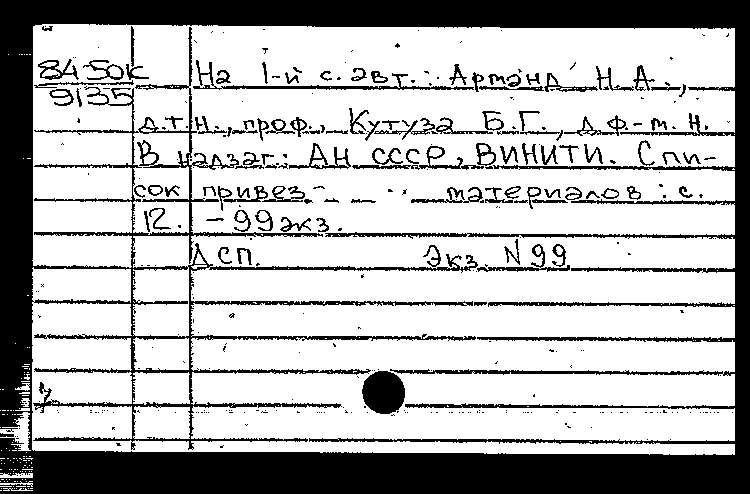 84-50К На 1-й с. авт.: Арманд Н.А.,
9135
д.т.н., проф., Кутуза Б.Г., д.ф.-м.н.
В надзаг.: АН СССР, ВИНИТИ. Спи-
сок привез материалов: с.
12. - 99 экз.
ДСП. Экз. N 99